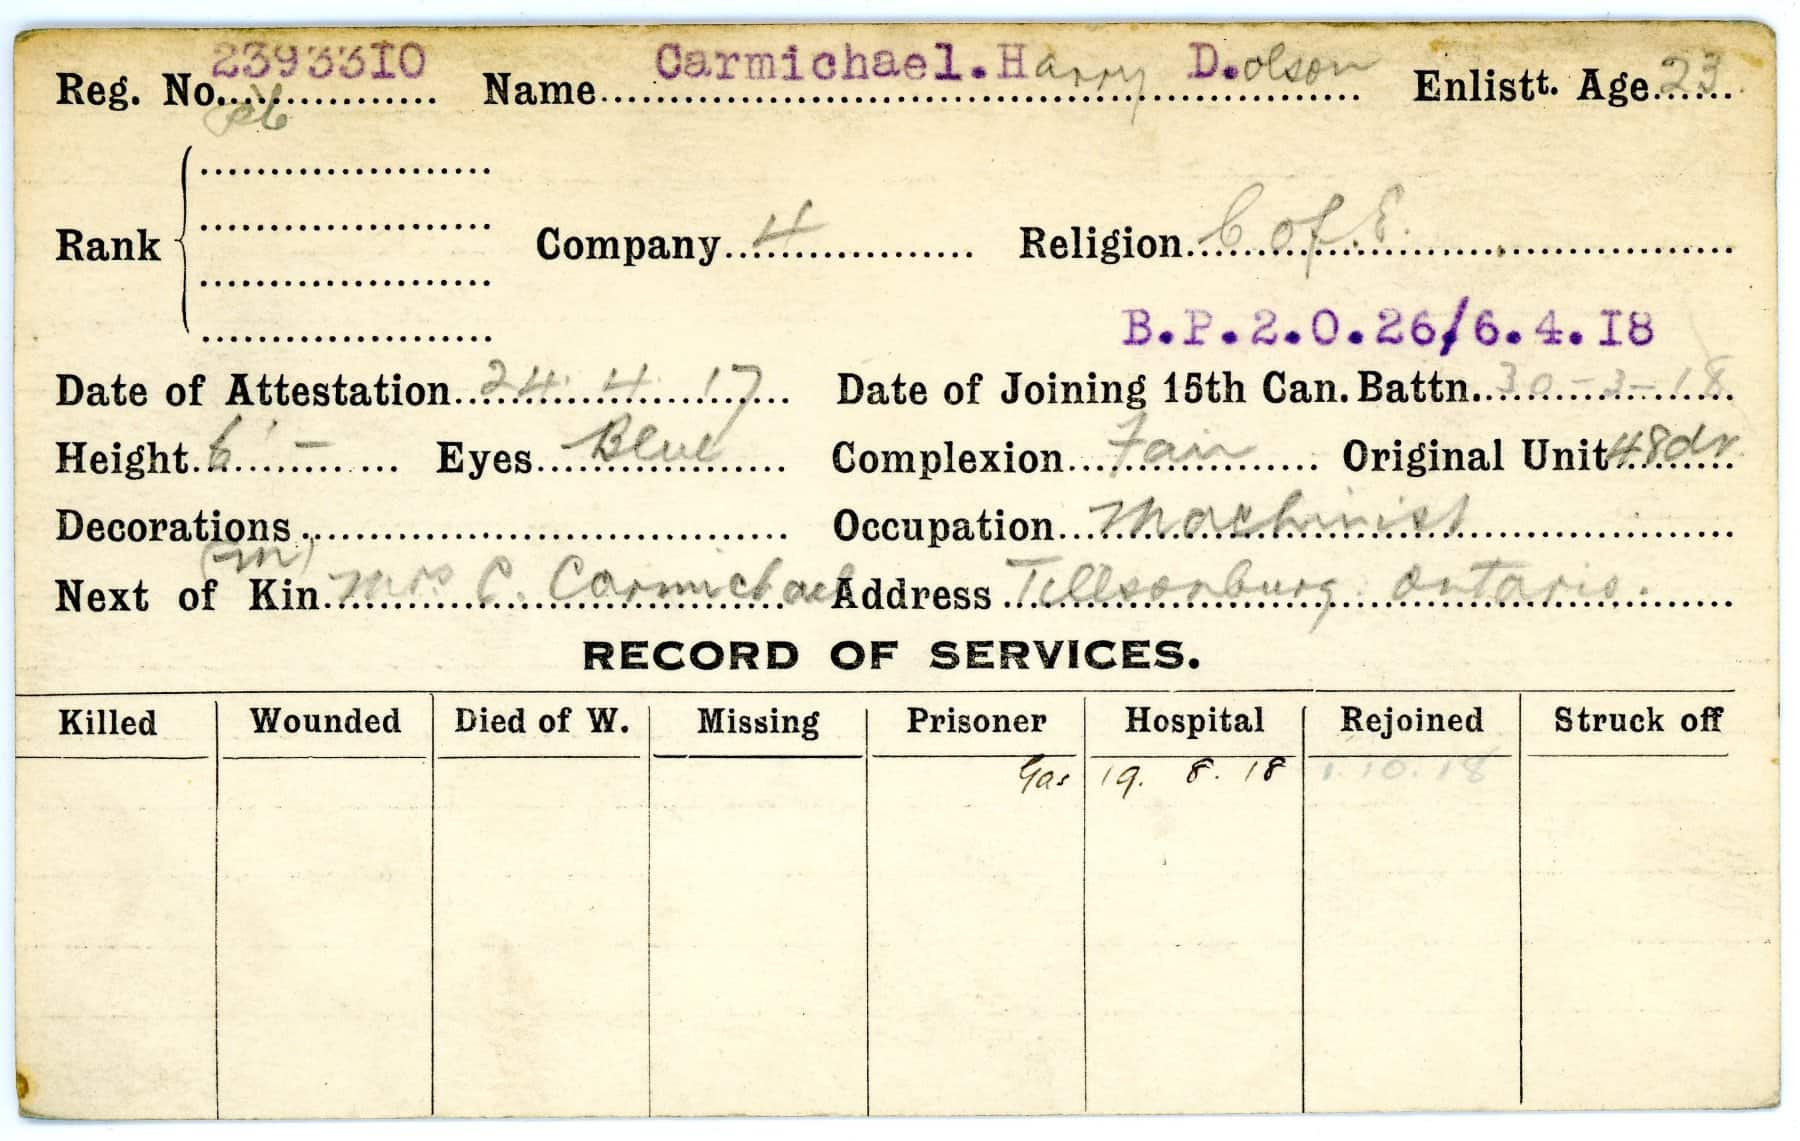 Reg. No. 2393310 Name Carmichael. Harry D.olson Enlistt. Age 23
Rank Company 4 Religion C of E.
B.P.2.0.26/6.4.18
Date of Attestation 24.4.17 Date of Joining 15th Can. Battn. 30-3-18
Height 6' - Eyes Blue Complexion Fair Original Unit 48
Decorations Occupation Machinist
(m)
Next of Kin Mrs C. Carmichael Address Tillsonburg. Ontario.
RECORD OF SERVICES.
Killed Wounded Died of W. Missing Prisoner Hospital Rejoined Struck off
Gas 19. 8. 18 1.10.18